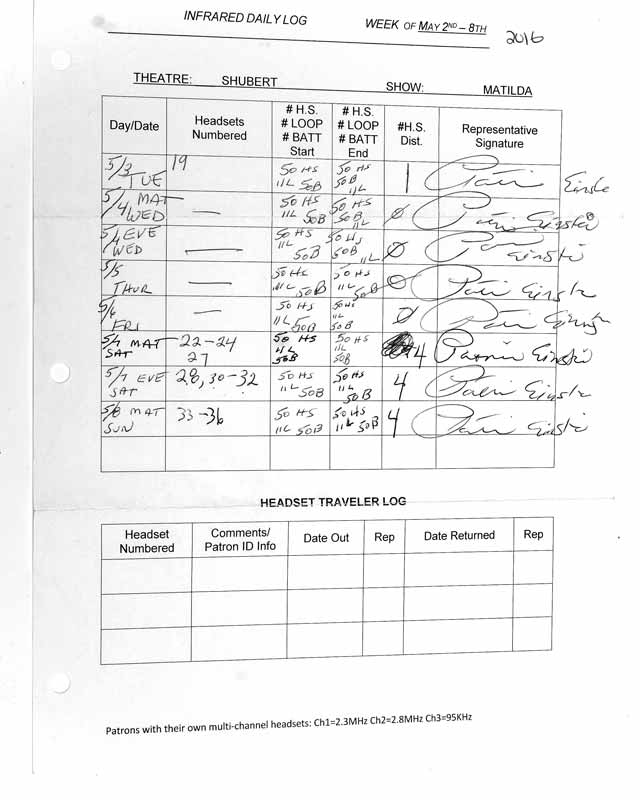 INFRARED DAILY LOG WEEK OF MAY 2ND – 8TH 2016
THEATRE: SHUBERT SHOW: MATILDA
Day/Date Headsets Numbered # H.S. # LOOP # BATT Start # H.S. # LOOP # BATT End #H.S. Dist. Representative Signature
5/3 TUE 19 50 HS 11L 50B 50 HS 50B 11L 1
5/4 MAT WED — 50 HS 11L 50B 50 HS 50B 11L Ø
5/4 EVE WED — 50 HS 11L 50B 50 HS 50B 11L Ø
5/5 THUR — 50 HS 11L 50B 50 HS 11L 50B Ø
5/6 FRI — 50 HS 11L 50B 50 HS 11L 50B Ø
5/7 MAT SAT 22-24 27 50 HS 11L 50B 50 HS 11L 50B 4
5/7 EVE SAT 28, 30-32 50 HS 11L 50B 50 HS 11L 50B 4
5/8 MAT SUN 33-36 50 HS 11L 50B 50 HS 11L 50B 4
HEADSET TRAVELER LOG
Headset Numbered Comments/ Patron ID Info Date Out Rep Date Returned Rep
Patrons with their own multi-channel headsets: Ch1=2.3MHz Ch2=2.8MHz Ch3=95KHz